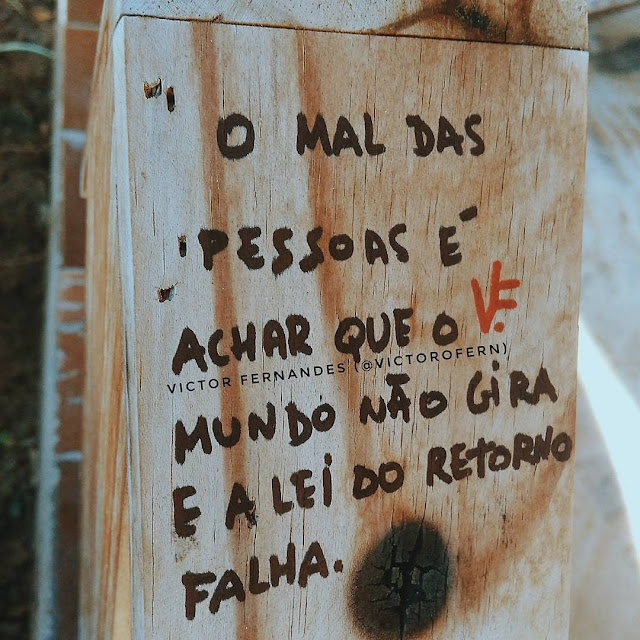 O MAL DAS
PESSOAS É
ACHAR QUE O
VF.
VICTOR FERNANDES (@VICTOROFERN)
MUNDO NÃO GIRA
E A LEI DO RETORNO
FALHA.